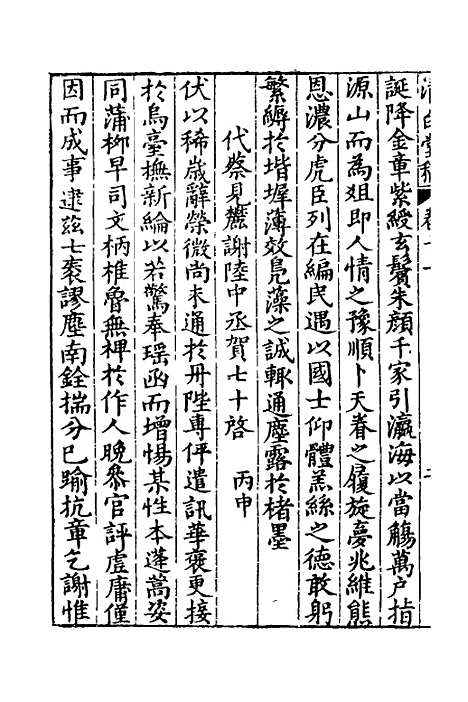 誕降金章紫綬玄鬢朱顏千家引瀛海以當觴萬户指
源山而為俎即人情之豫順卜天眷之履旋夢兆維熊
恩濃分虎臣列在編民遇以國士仰體羔絲之德敢躬
繁縟於堦墀薄效鳧藻之誠輒通塵露於楮墨
代蔡見麓謝陸中丞賀七十啓　丙申
伏以稀歲辭榮微尚未通於丹陛專伻遣訊華衮更接
於烏臺撫新綸以若驚奉瑶函而增惕某性本蓬蒿姿
同蒲柳早司文柄椎魯無裨於作人晚叅官評虗庸僅
因而成事逮兹七袠謬塵南銓揣分已踰抗章乞謝惟